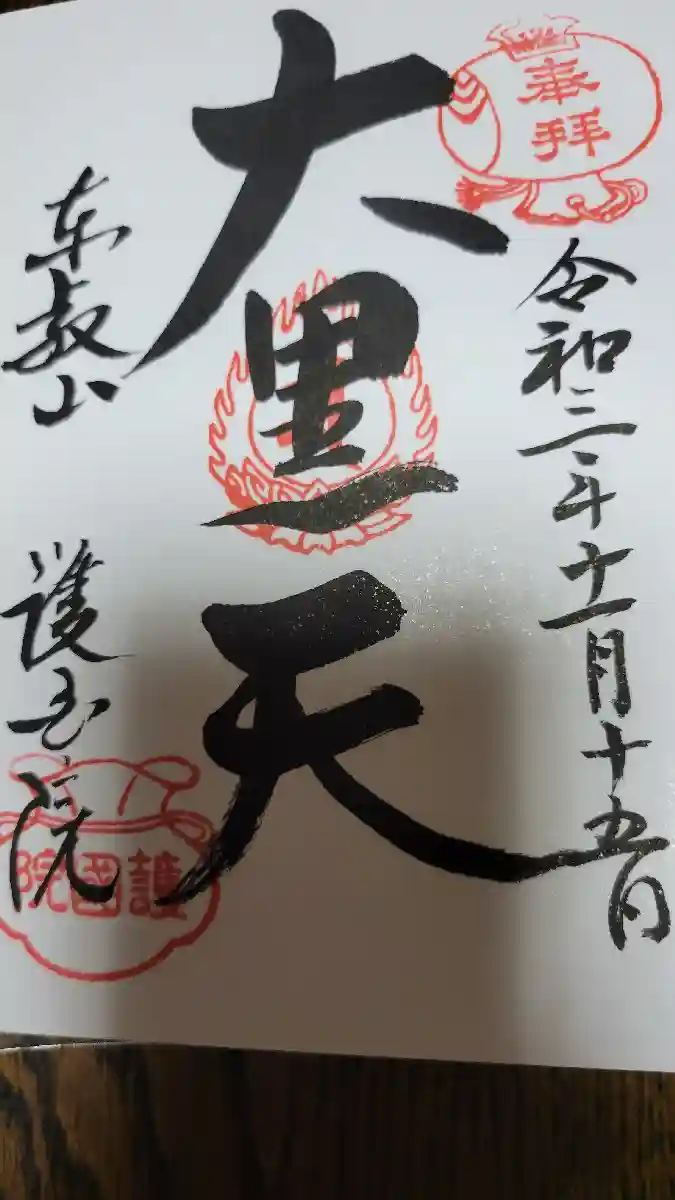 奉拝
令和三年十一月十五日
大黒天
東叡山
護国院
護國院